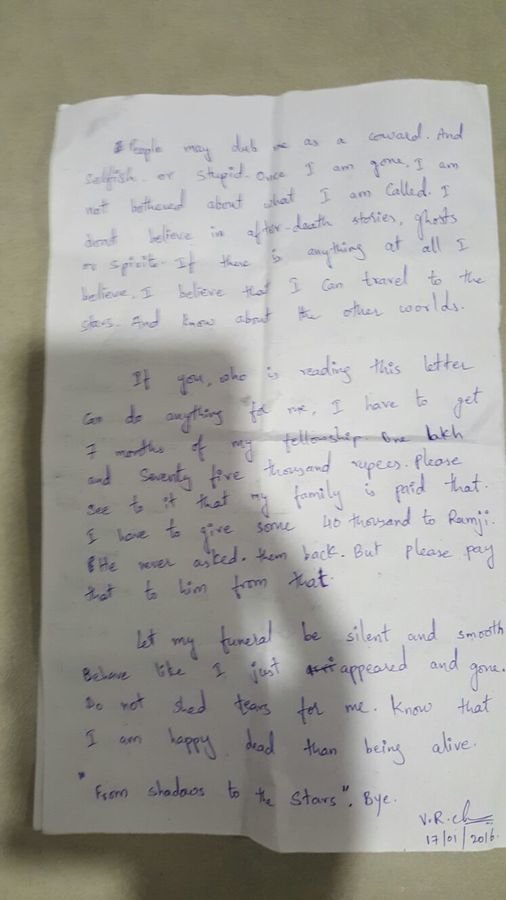 People may dub me as a coward. And
selfish, or stupid. Once I am gone, I am
not bothered about what I am called. I
dont believe in after-death stories, ghosts
or spirits. If there is anything at all I
believe, I believe that I can travel to the
stars. And know about the other worlds.
If you, who is reading this letter
can do anything for me, I have to get
7 months of my fellowship. One lakh
and seventy five thousand rupees. Please
see to it that my family is paid that.
I have to give some 40 thousand to Ramji.
He never asked them back. But please pay
that to him from that.
Let my funeral be silent and smooth
Behave like I just appeared and gone.
Do not shed tears for me. Know that
I am happy dead than being alive.
"From shadows to the stars". Bye.
V.R.
17/01/2016